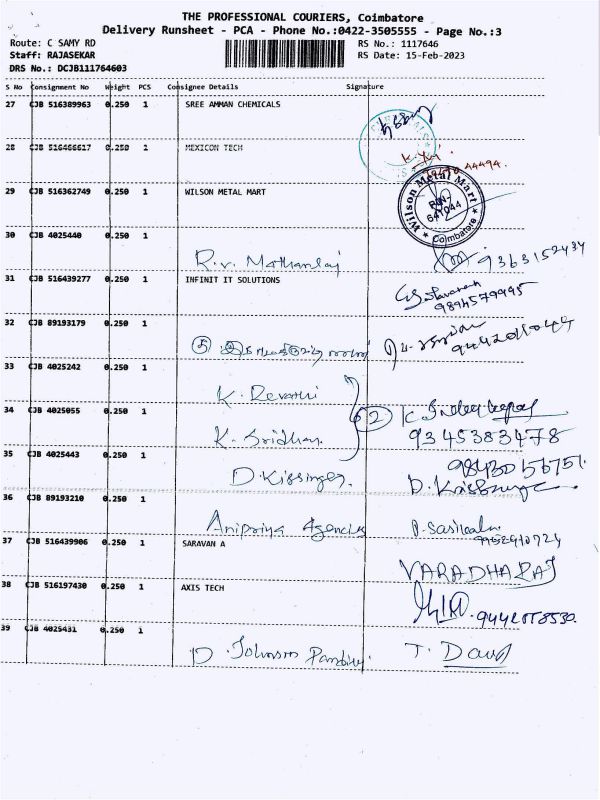 THE PROFESSIONAL COURIERS, Coimbatore
Delivery Runsheet - PCA - Phone No.:0422-3505555 - Page No.:3
Route: C SAMY RD
RS No.: 1117646
Staff: RAJASEKAR
RS Date: 15-Feb-2023
DRS No.: DCJB111764603
S No Consignment No Weight PCS Consignee Details Signature
27 CJB 516389963 0.250 1 SREE AMMAN CHEMICALS
28 CJB 516466617 0.250 1 MEXICON TECH
44494.
29 CJB 516362749 0.250 1 WILSON METAL MART
Wilson Metal Mart
Coimbatore
30 CJB 4025440 0.250 1
R.V. Mothanraj 9363152434
31 CJB 516439277 0.250 1 INFINIT IT SOLUTIONS
9894579995
32 CJB 89193179 0.250 1
5
33 CJB 4025242 0.250 1
K. Revathi
34 CJB 4025055 0.250 1
K. Sridhar 2 9345383478
35 CJB 4025443 0.250 1
9843056751.
D. Kissinger.
36 CJB 89193210 0.250 1
Anipriya Agencies
37 CJB 516439906 0.250 1 SARAVAN A
VARADHARAJ
38 CJB 516197430 0.250 1 AXIS TECH
39 CJB 4025431 0.250 1
D. Johnson T. David